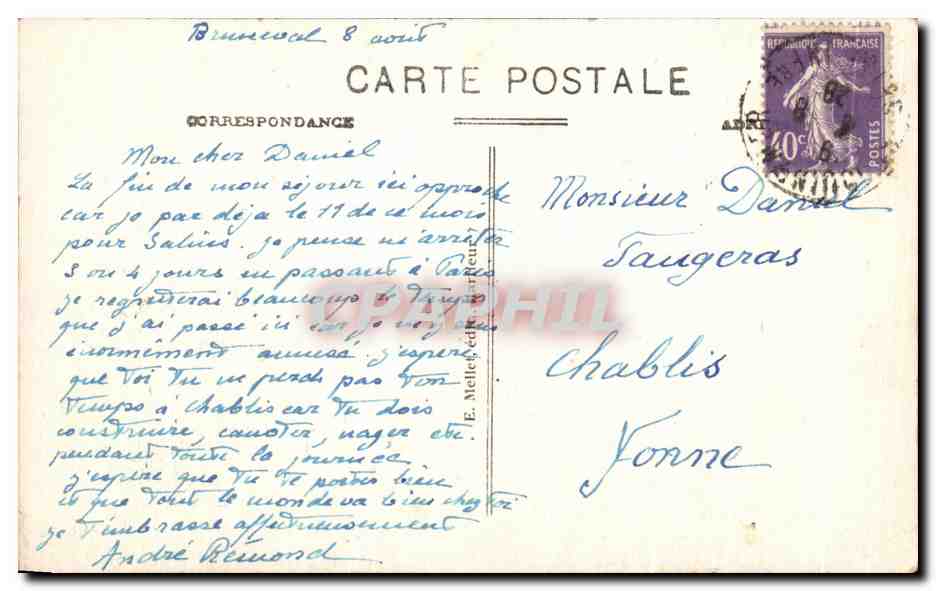 Bruneval 8 août
CARTE POSTALE
CORRESPONDANCE
Mon cher Daniel
La fin de mon séjour ici approche
car je pars déjà le 11 de ce mois
pour Salins. Je pense m'arrêter
3 ou 4 jours en passant à Paris
je regretterai beaucoup le temps
que j'ai passé ici car je
énormément amusé. J'espère
que toi tu ne perds pas ton
temps à Chablis car tu dois
construire, canoter, nager etc.
pendant toute la journée
J'espère que tu te portes bien
et que tout le monde va bien chez toi
je t'embrasse affectueusement
André Rémond
E. Mellet, édit.
REPUBLIQUE FRANÇAISE
40c
POSTES
Monsieur Daniel
Faugeras
Chablis
Yonne
CPAPHIL